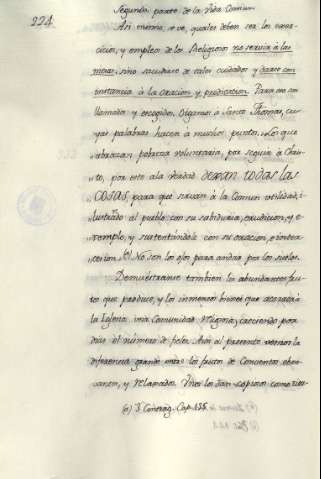 224
Segunda parte de la Vida Comun
Asi mismo, se ve, quales deben ser los exer-
cicios, y empleo de los Religiosos no servir á las
mesas, sino sacudirse de tales cuidados y darse con
instancia á la oracion y predicacion. Para eso son
llamados y escogidos. Oigamos á Santo Thomas, cu-
yas palabras hacen á nuestro punto. "Los que
"abrazan pobreza voluntaria, por seguir á Chris-
"to, por esto á la verdad dexan todas las
"cosas, para que sirvan á la Comun utilidad, i-
"lustrando al pueblo con su sabiduria, erudicion, y e-
"xemplo, y sustentandole con su oracion, e interce-
"sion. No son los ojos para andar por los suelos.
Demuestrame tambien los abundantes fru-
tos que produce, y los inmensos bienes que acarrea á
la Iglesia una Comunidad Religiosa, y creciendo por
dias el número de fieles. Aun al presente vemos la
diferencia grande entre los frutos de Conventos obser-
vantes, y relaxados. Unos los dan copiosos como tier-
Cap. 135.